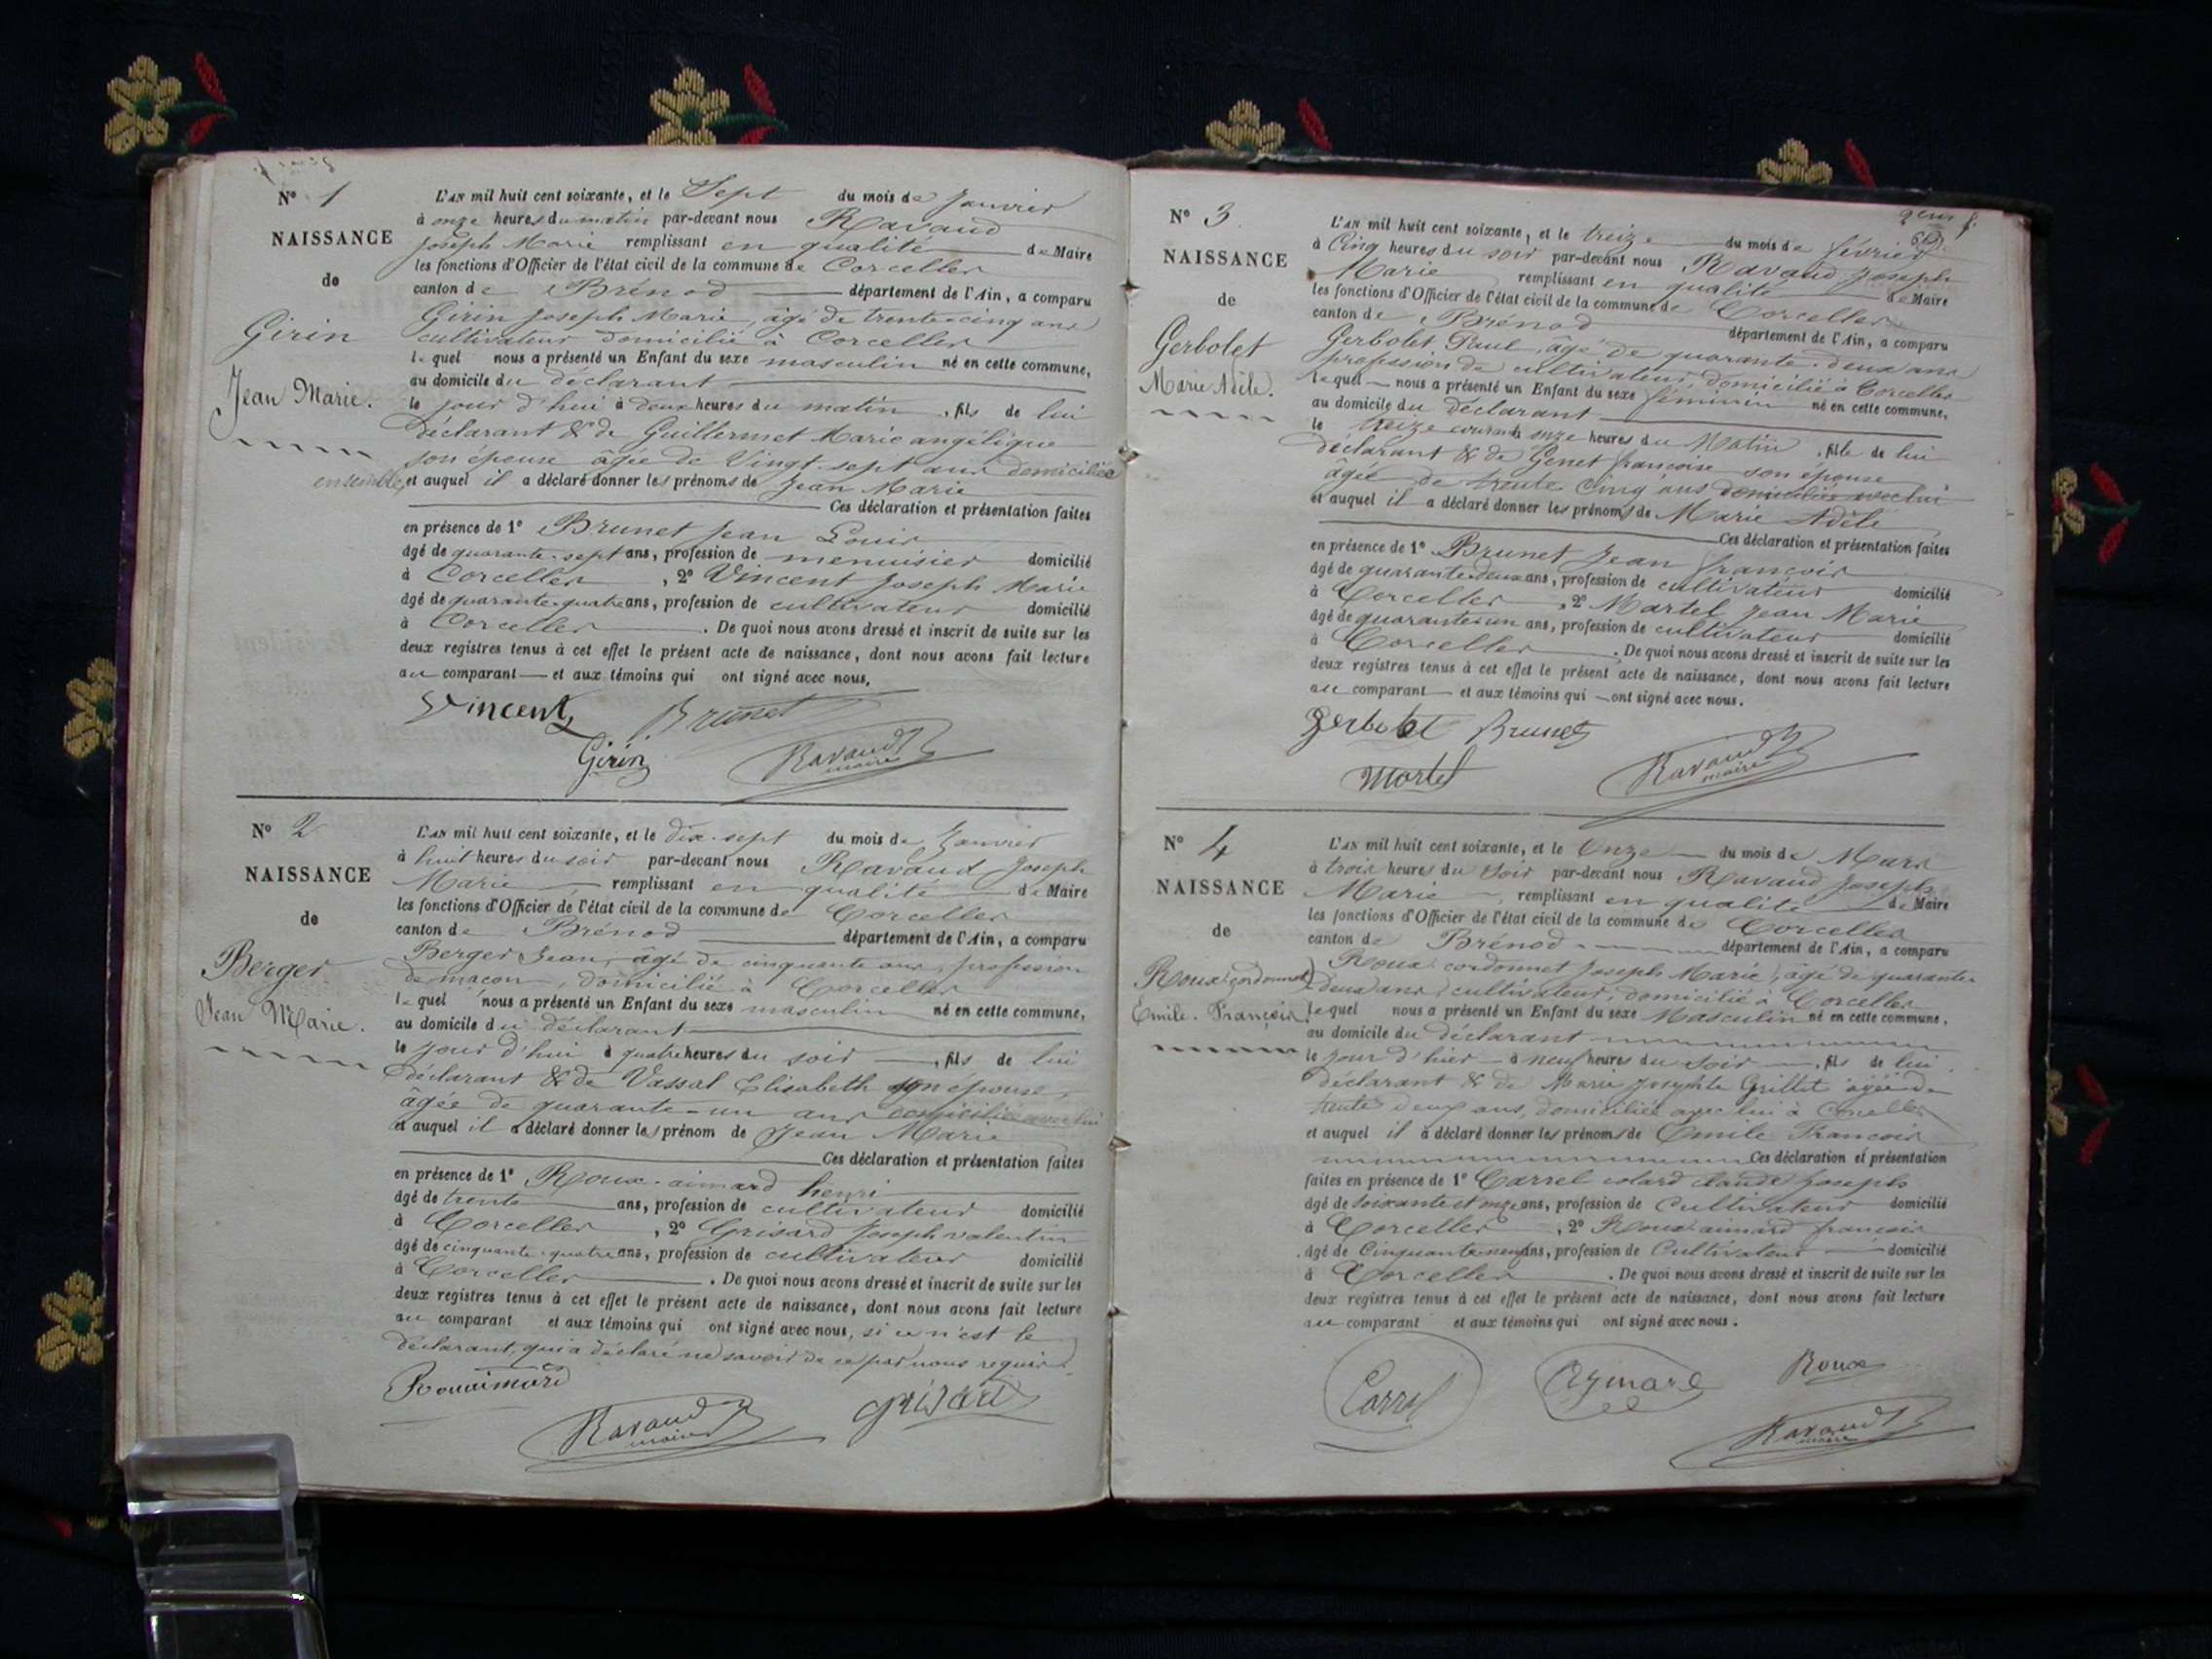 N° 1
NAISSANCE
de
Girin
Jean Marie.
L'AN mil huit cent soixante, et le Sept du mois de Janvier
à onze heures du matin par-devant nous Ravaud
Joseph Marie remplissant en qualité de Maire
les fonctions d'Officier de l'état civil de la commune de Corcelles
canton de Brénod département de l'Ain, a comparu
Girin Joseph Marie, âgé de trente-cinq ans
cultivateur domicilié à Corcelles
lequel nous a présenté un Enfant du sexe masculin né en cette commune,
au domicile du déclarant
le jour d'hui à deux heures du matin, fils de lui
déclarant & de Guillermet Marie angélique
son épouse âgée de Vingt-sept ans domiciliée
ensemble, et auquel il a déclaré donner les prénoms de Jean Marie
Ces déclaration et présentation faites
en présence de 1° Brunet Jean Louis
âgé de quarante-sept ans, profession de menuisier domicilié
à Corcelles, 2° Vincent Joseph Marie
âgé de quarante-quatre ans, profession de cultivateur domicilié
à Corcelles. De quoi nous avons dressé et inscrit de suite sur les
deux registres tenus à cet effet le présent acte de naissance, dont nous avons fait lecture
au comparant et aux témoins qui ont signé avec nous.
Vincent Brunet
Girin Ravaud
maire
N° 2
NAISSANCE
de
Berger
Jean Marie.
L'AN mil huit cent soixante, et le dix-sept du mois de Janvier
à huit heures du soir par-devant nous Ravaud Joseph
Marie remplissant en qualité de Maire
les fonctions d'Officier de l'état civil de la commune de Corcelles
canton de Brénod département de l'Ain, a comparu
Berger Jean, âgé de cinquante ans, profession
de maçon, domicilié à Corcelles
lequel nous a présenté un Enfant du sexe masculin né en cette commune,
au domicile du déclarant
le jour d'hui à quatre heures du soir, fils de lui
déclarant & de Vassal Elisabeth son épouse,
âgée de quarante-un ans domiciliée avec lui
et auquel il a déclaré donner les prénom de Jean Marie
Ces déclaration et présentation faites
en présence de 1° Roux-aimard henri
âgé de trente ans, profession de cultivateur domicilié
à Corcelles, 2° Grisard Joseph valentin
âgé de cinquante-quatre ans, profession de cultivateur domicilié
à Corcelles. De quoi nous avons dressé et inscrit de suite sur les
deux registres tenus à cet effet le présent acte de naissance, dont nous avons fait lecture
au comparant et aux témoins qui ont signé avec nous, si ce n'est le
déclarant, qui a déclaré ne savoir de ce par nous requis.
Rouaimard
Ravaud
maire
grisard
N° 3
NAISSANCE
de
Gerbolet
Marie Adèle.
L'AN mil huit cent soixante, et le treize du mois de février
à Cinq heures du soir par-devant nous Ravaud Joseph
Marie remplissant en qualité de Maire
les fonctions d'Officier de l'état civil de la commune de Corcelles
canton de Brénod département de l'Ain, a comparu
Gerbolet Paul, âgé de quarante-deux ans
profession de cultivateur, domicilié à Corcelles
lequel nous a présenté un Enfant du sexe féminin né en cette commune,
au domicile du déclarant
le treize courant à onze heures du Matin, fille de lui
déclarant & de Genet françoise son épouse
âgée de trente cinq ans domiciliée avec lui
et auquel il a déclaré donner les prénoms de Marie Adèle
Ces déclaration et présentation faites
en présence de 1° Brunet Jean françois
âgé de quarante-deux ans, profession de cultivateur domicilié
à Corcelles, 2° Martel Jean Marie
âgé de quarante-un ans, profession de cultivateur domicilié
à Corcelles. De quoi nous avons dressé et inscrit de suite sur les
deux registres tenus à cet effet le présent acte de naissance, dont nous avons fait lecture
au comparant et aux témoins qui ont signé avec nous.
gerbolet Brunet
Martel Ravaud
maire
N° 4
NAISSANCE
de
Roux (cordonnet)
Emile. François.
L'AN mil huit cent soixante, et le Onze du mois de Mars
à trois heures du Soir par-devant nous Ravaud Joseph
Marie, remplissant en qualité de Maire
les fonctions d'Officier de l'état civil de la commune de Corcelles
canton de Brénod département de l'Ain, a comparu
Roux cordonnet Joseph Marie, âgé de quarante
deux ans, cultivateur, domicilié à Corcelles
lequel nous a présenté un Enfant du sexe Masculin né en cette commune,
au domicile du déclarant
le jour d'hier à neuf heures du Soir, fils de lui
déclarant & de Marie Josephte Grillet âgée de
trente deux ans, domiciliée avec lui à Corcelles
et auquel il a déclaré donner les prénoms de Emile François
Ces déclaration et présentation
faites en présence de 1° Carrel colard claude Joseph
âgé de soixante et onze ans, profession de Cultivateur domicilié
à Corcelles, 2° Roux aimard françois
âgé de Cinquante-neuf ans, profession de Cultivateur domicilié
à Corcelles. De quoi nous avons dressé et inscrit de suite sur les
deux registres tenus à cet effet le présent acte de naissance, dont nous avons fait lecture
au comparant et aux témoins qui ont signé avec nous.
Carrel Aymard Roux
Ravaud
maire